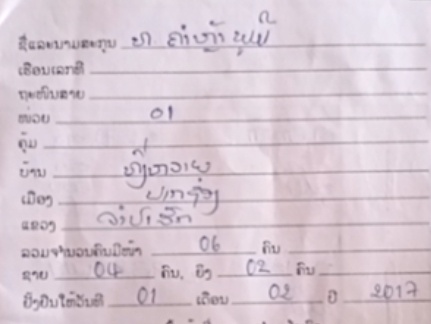 ຊື່ແລະນາມສະກຸນ ທ ຄໍາຫຼ້າ
ເຮືອນເລກທີ
ຖະໜົນສາຍ
ໜ່ວຍ 01
ຄຸ້ມ
ບ້ານ
ເມືອງ ປາກຊ່ອງ
ແຂວງ ຈໍາປາສັກ
ລວມຈໍານວນຄົນມີໜ້າ 06 ຄົນ
ຊາຍ 04 ຄົນ, ຍິງ 02 ຄົນ
ຢັ້ງຢືນໃຫ້ວັນທີ 01 ເດືອນ 02 ປີ 2017